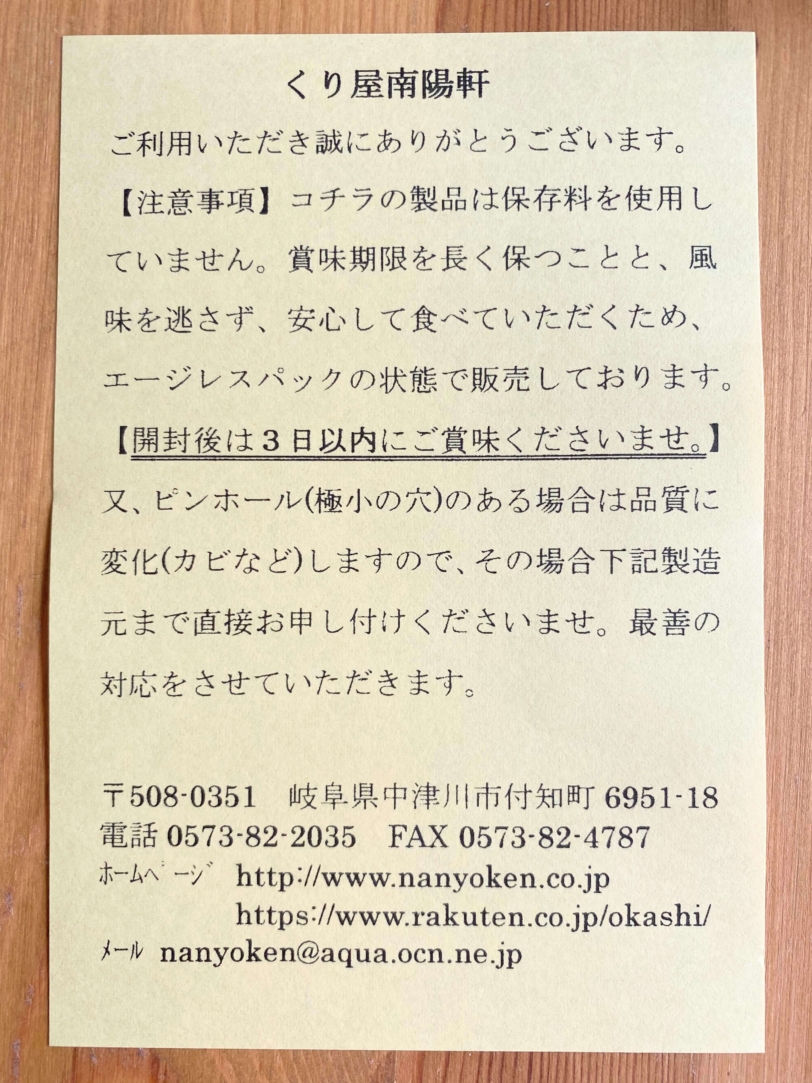 くり屋南陽軒
ご利用いただき誠にありがとうございます。
【注意事項】コチラの製品は保存料を使用し
ていません。賞味期限を長く保つことと、風
味を逃さず、安心して食べていただくため、
エージレスパックの状態で販売しております。
【開封後は３日以内にご賞味くださいませ。】
又、ピンホール(極小の穴)のある場合は品質に
変化(カビなど)しますので、その場合下記製造
元まで直接お申し付けくださいませ。最善の
対応をさせていただきます。
〒508-0351　岐阜県中津川市付知町 6951-18
電話 0573-82-2035　FAX 0573-82-4787
ﾎｰﾑﾍﾟｰｼﾞ　http://www.nanyoken.co.jp
https://www.rakuten.co.jp/okashi/
ﾒｰﾙ　nanyoken@aqua.ocn.ne.jp